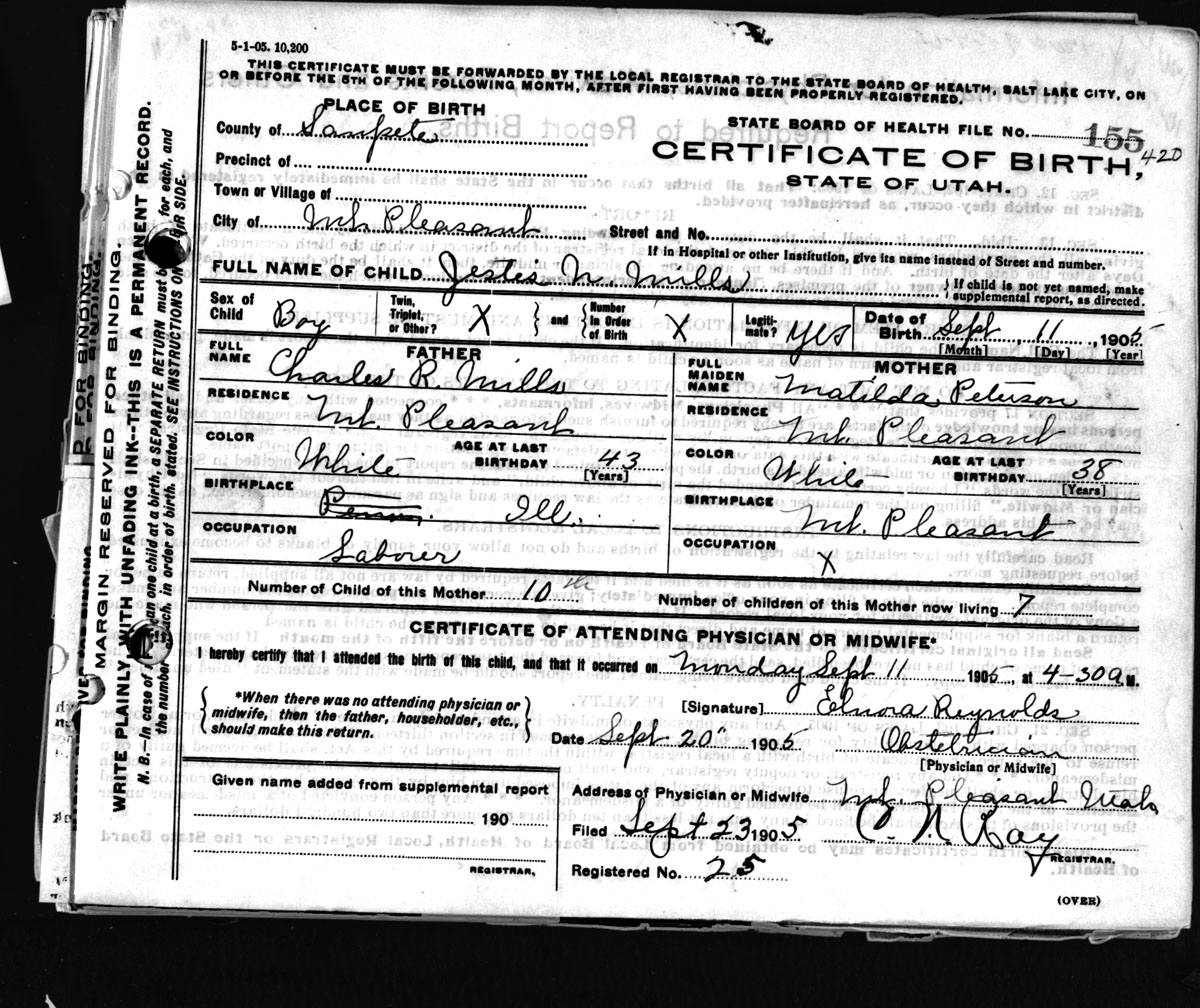 5-1-05. 10,200
THIS CERTIFICATE MUST BE FORWARDED BY THE LOCAL REGISTRAR TO THE STATE BOARD OF HEALTH, SALT LAKE CITY, ON
OR BEFORE THE 5TH OF THE FOLLOWING MONTH, AFTER FIRST HAVING BEEN PROPERLY REGISTERED.
PLACE OF BIRTH
County of Sanpete
Precinct of
Town or Village of
City of Mt. Pleasant
STATE BOARD OF HEALTH FILE No. 155
420
CERTIFICATE OF BIRTH,
STATE OF UTAH.
Street and No.
If in Hospital or other Institution, give its name instead of Street and number.
FULL NAME OF CHILD M. Mills
If child is not yet named, make
supplemental report, as directed.
Sex of Child Boy
Twin, Triplet, or Other? X
and
Number in Order of Birth X
Legitimate? yes
Date of Birth Sept 11, 1905
[Month] [Day] [Year]
FATHER
FULL NAME Charles R. Mills
RESIDENCE Mt. Pleasant
COLOR White
AGE AT LAST BIRTHDAY 43
[Years]
BIRTHPLACE Ill.
OCCUPATION Laborer
MOTHER
FULL MAIDEN NAME Matilda Peterson
RESIDENCE Mt. Pleasant
COLOR White
AGE AT LAST BIRTHDAY 38
[Years]
BIRTHPLACE Mt. Pleasant
OCCUPATION X
Number of Child of this Mother 10th
Number of children of this Mother now living 7
CERTIFICATE OF ATTENDING PHYSICIAN OR MIDWIFE*
I hereby certify that I attended the birth of this child, and that it occurred on Monday Sept 11 1905, at 4-30 a.M.
*When there was no attending physician or
midwife, then the father, householder, etc.,
should make this return.
[Signature] Elnora Reynolds
Date Sept 20" 1905
Obstetrician
[Physician or Midwife]
Given name added from supplemental report
190
REGISTRAR.
Address of Physician or Midwife Mt. Pleasant Utah
Filed Sept 23 1905
REGISTRAR.
Registered No. 25
(OVER)
MARGIN RESERVED FOR BINDING.
WRITE PLAINLY WITH UNFADING INK--THIS IS A PERMANENT RECORD.